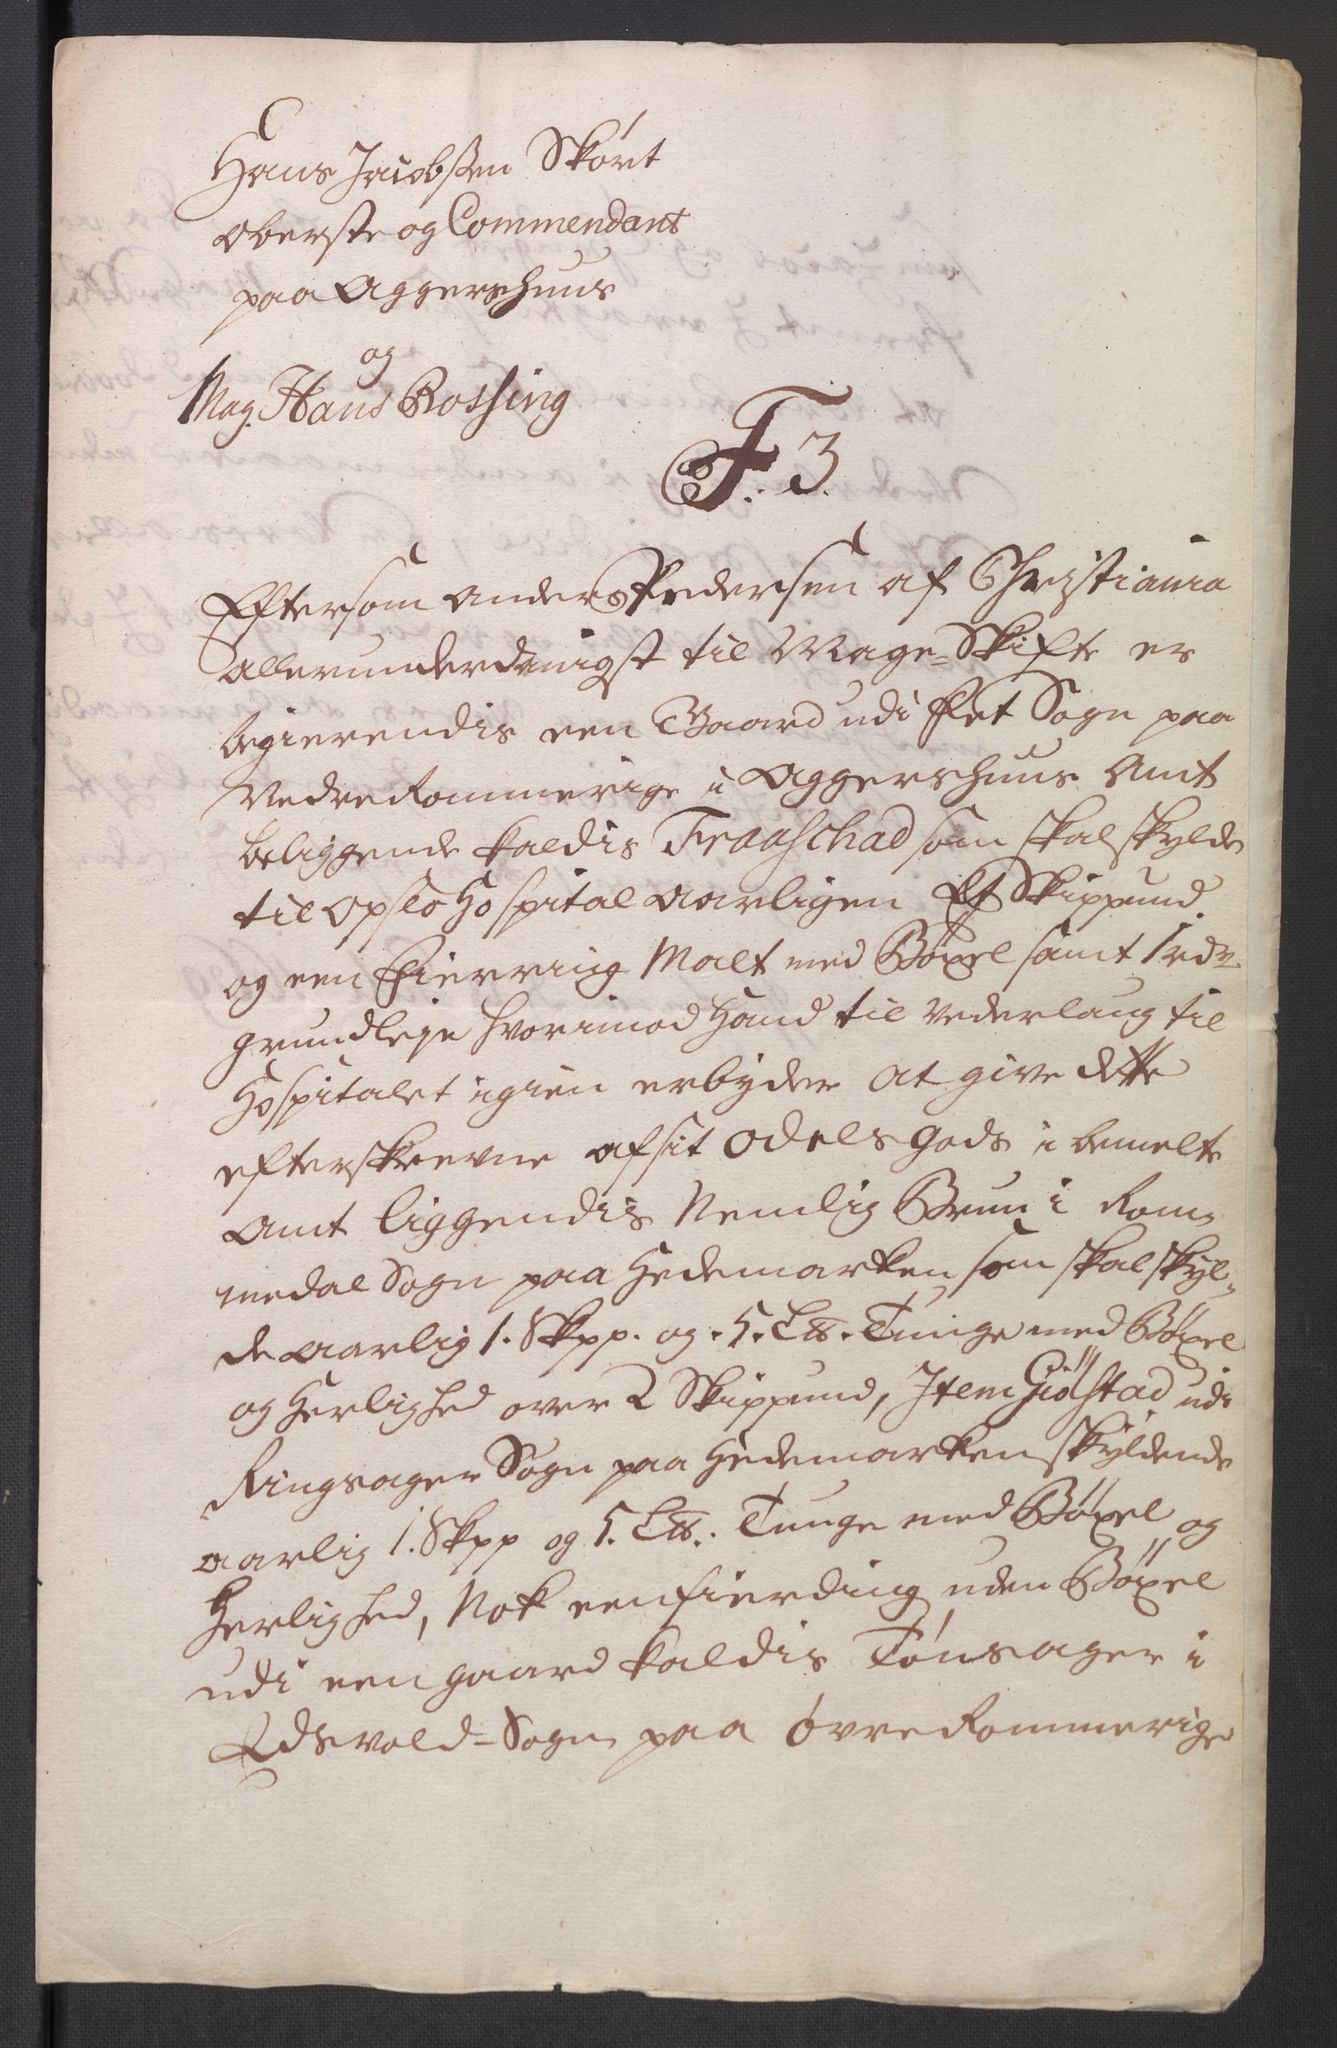 Hans Jacobsen Skørt
oberste og Commendant
paa Aggershuus
og
Mag. Hans Rossing
F: 3.
Eftersom Anders Pedersen af Christiania
allerunderdanigst til Mage-Skifte er
begierendis een Gaard udi Fet Sogn paa
Nedre Rommerige i Aggershuus Amt
beliggende kaldis Fraaschad som skal skylde
til Opslo Hospital aarligen Et Skippund
og een Fierring Malt med Böxel samt
grundleje hvorimod hand til Vederlaug til
Hospitalet igien erbyder at give dette
efterskrevne af sit Odels gods i bemelte
Amt liggendis Nemlig Bruun i Rom-
medal Sogn paa Hedemarken som skal skyl-
de aarlig 1. Skpp. og 5. L℔. Tunge med Böxel
og Herlighed over 2 Skippund, Item Giölstad udi
Ringsager Sogn paa Hedemarken skyldende
aarlig 1. Skpp og 5. L℔. Tunge med Böxel og
Herlighed, Nok een fierding uden Böxel
udi een gaard kaldis Tønsager i
Edsvold-Sogn paa Øvre Rommerige